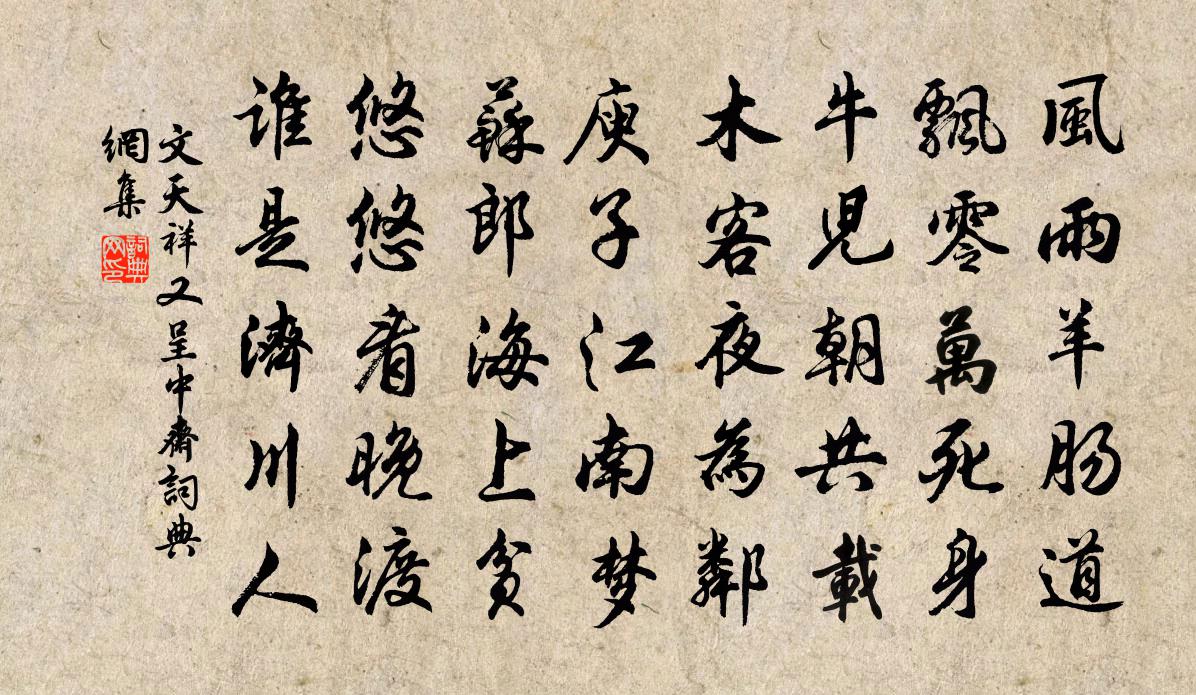 風雨羊肠道
飄零萬死身
牛兒朝共載
木客夜為鄰
庾子江南梦
蘇郎海上貧
悠悠看晚渡
谁是濟川人
文天祥又呈中齋詞典
網集
詞典网印